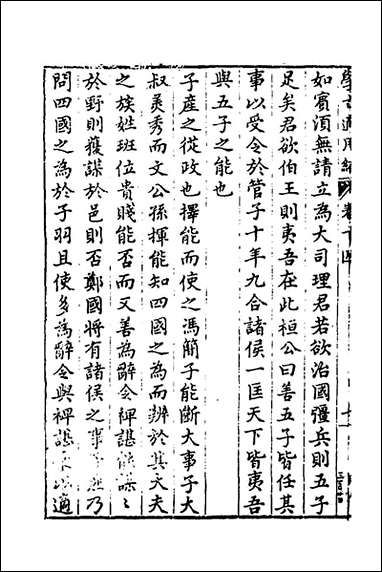 學古適用編 卷十四
如賓湏無請立為大司理君若欲治國彊兵則五子
足矣君欲伯王則夷吾在此桓公曰善五子皆任其
事以受令於管子十年九合諸侯一匡天下皆夷吾
與五子之能也
子產之從政也擇能而使之馮簡子能斷大事子大
叔美秀而文公孫揮能知四國之為而辨於其大夫
之族姓班位貴賤能否而又善為辭令裨諶能謀〻
於野則獲謀於邑則否鄭國將有諸侯之事子產乃
問四國之為於子羽且使多為辭令與裨諶乘以適